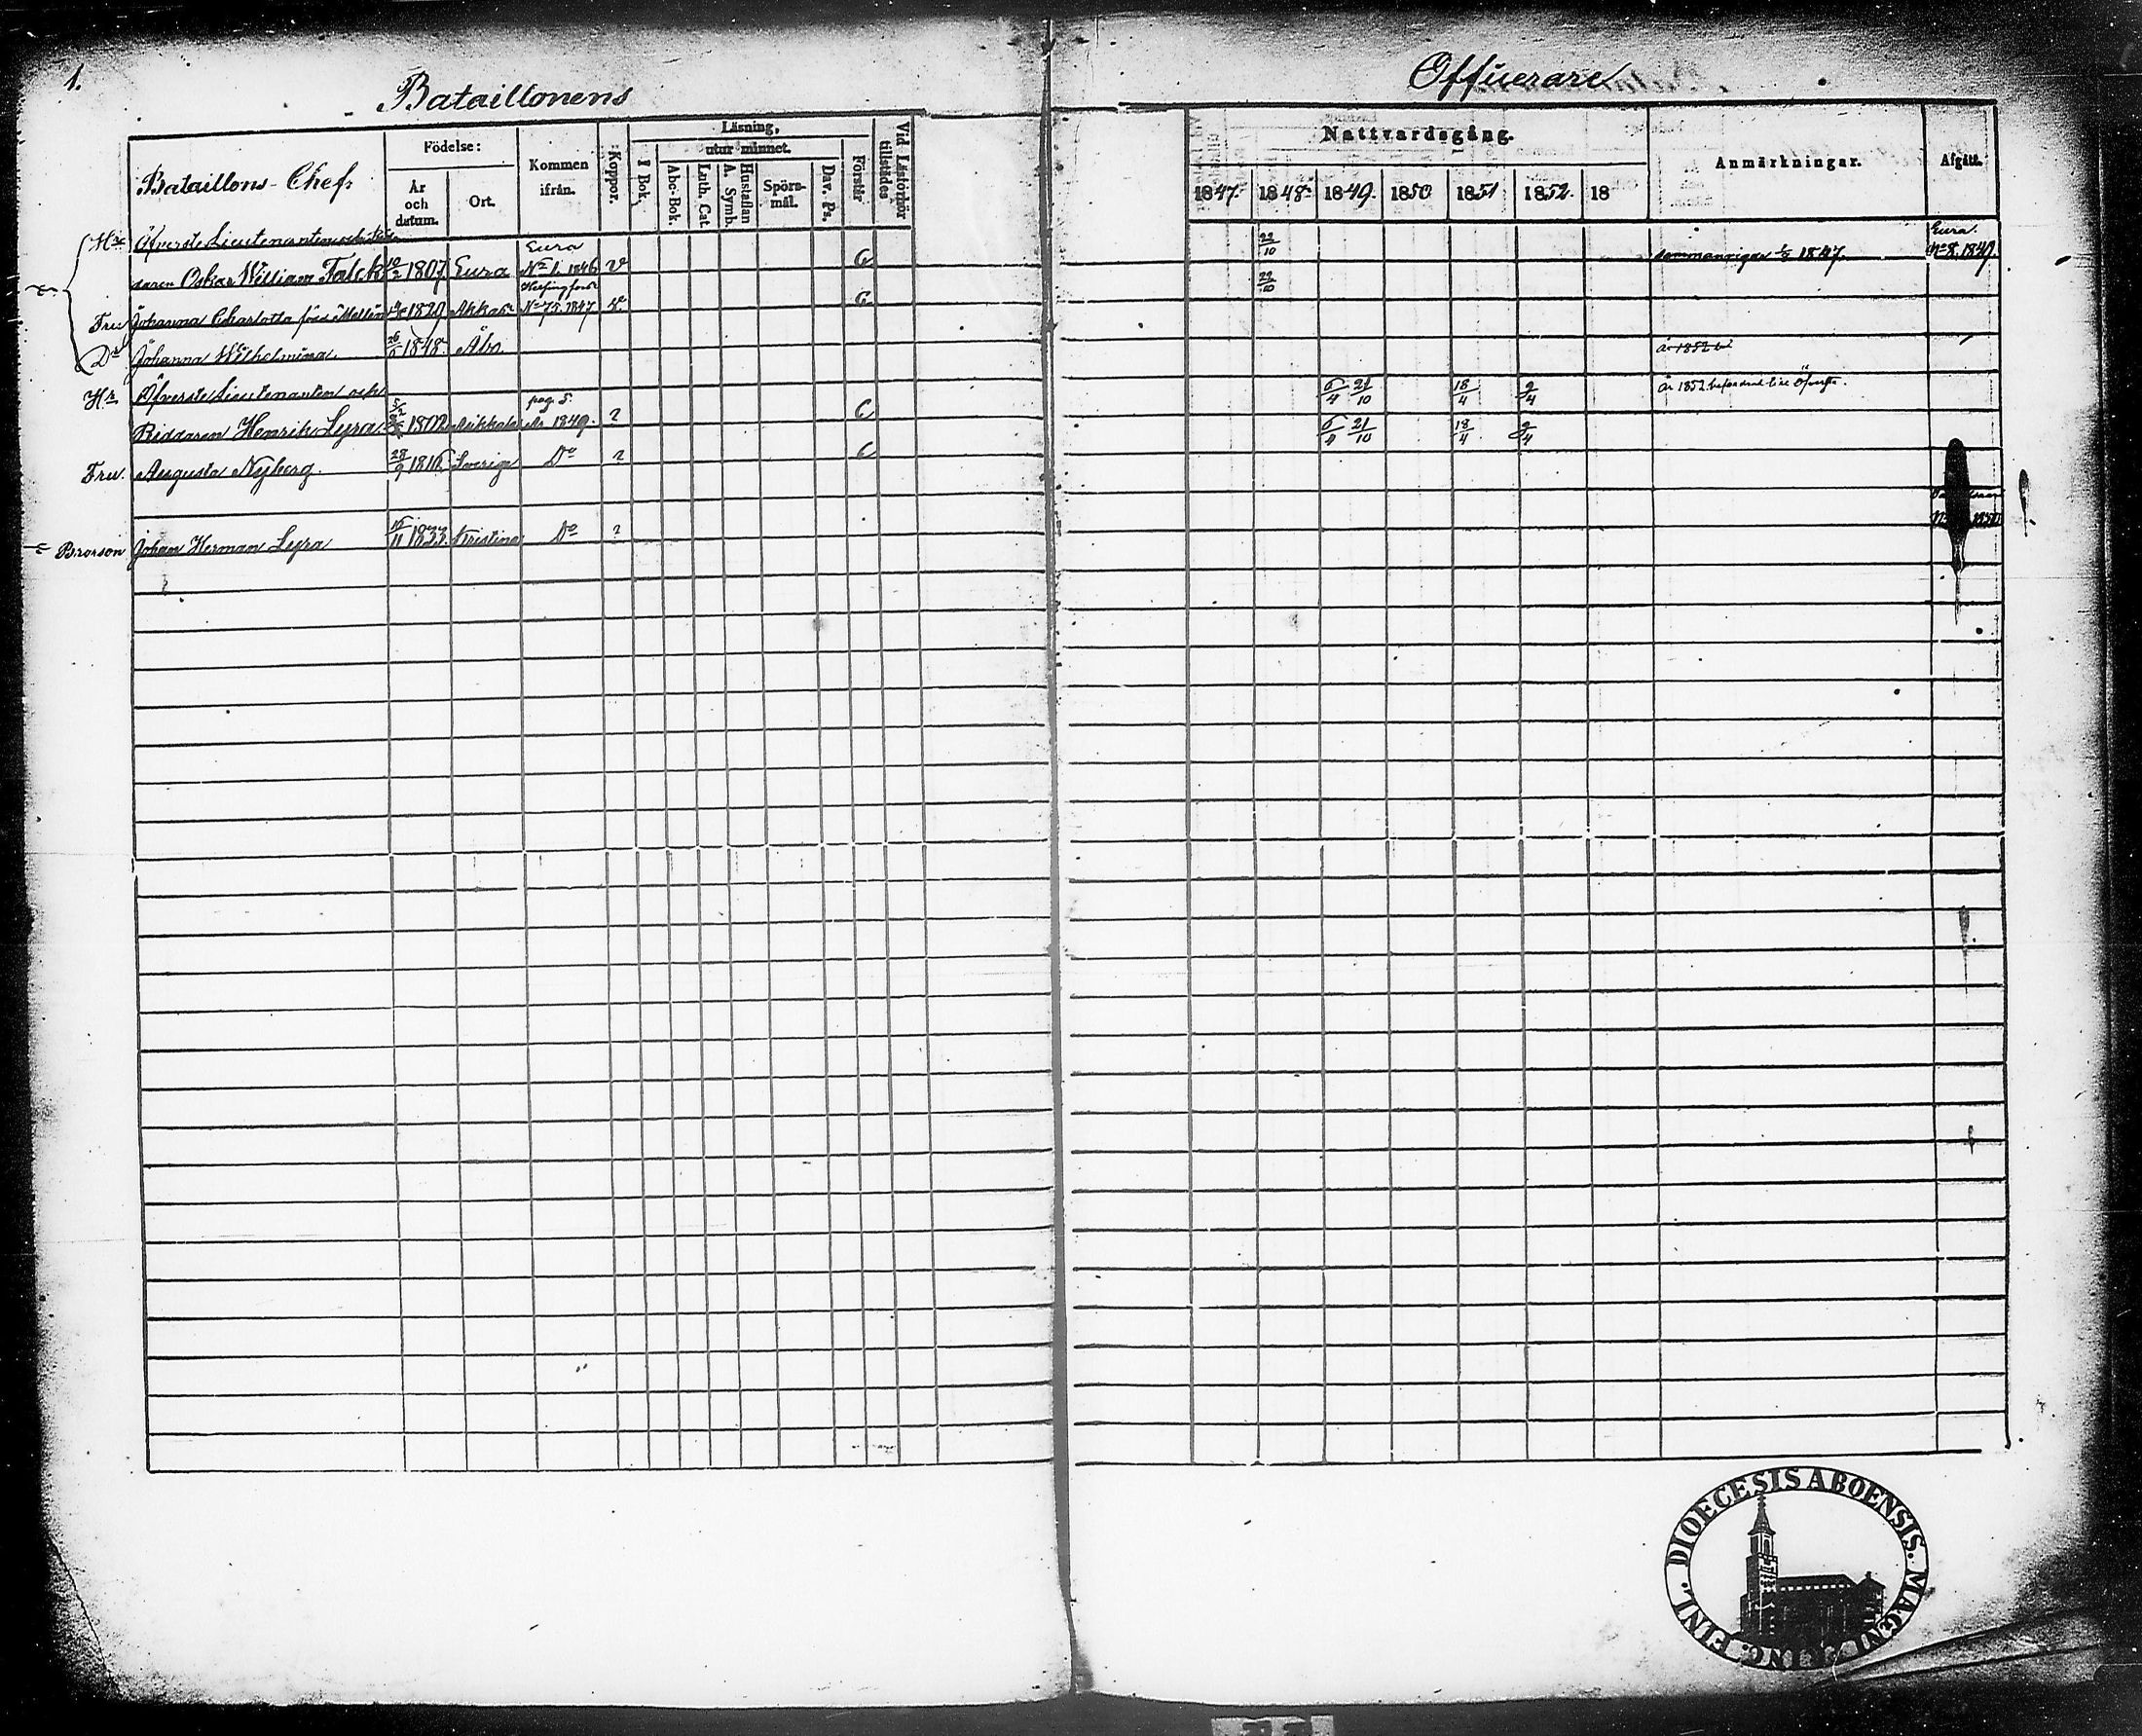 1.
Bataillonens
Officerare
Bataillons-Chef.
Födelse:
År och datum.
Ort.
Kommen ifrån.
Koppor.
Läsning,
utur minnet.
I Bok.
Abc-Bok.
Luth. Cat.
A. Symb. Hustaflan
Spörsmål.
Dav. Ps.
Förstår
Vid Läsförhör tillstädes
Nattvardsgång.
1847. 1848. 1849. 1850 1851 1852. 18
Anmärkningar.
Afgått.
Hr Öfverste Lieutenanten och Rid-
daren Oskar William Falck 10/2 1807 Eura Eura No 1. 1846 v C 22/10 1847. Eura. No 8. 1849.
Fru Johanna Charlotta född Mellin 1820 Akkas Helsingfors No 75. 1847 v. C 22/10
Dr Johanna Wilhelmina. 26/6 1848. Åbo. år 1852
Hr Öfverste Lieutenanten och
Riddaren Henrik Lyra. pag. 5. 1849. ? C 6/4 21/10 18/4 2/4 år 1852 befordrad till Öfverste.
Fru. Augusta Nyberg. 28/9 1816 Sverige Do ? C 6/4 21/10 18/4 2/4
Brorson Johan Herman Lyra 15/11 1833. Kristina Do ?
FINL. DIOECESIS ABOENSIS. MAGNI DUC.